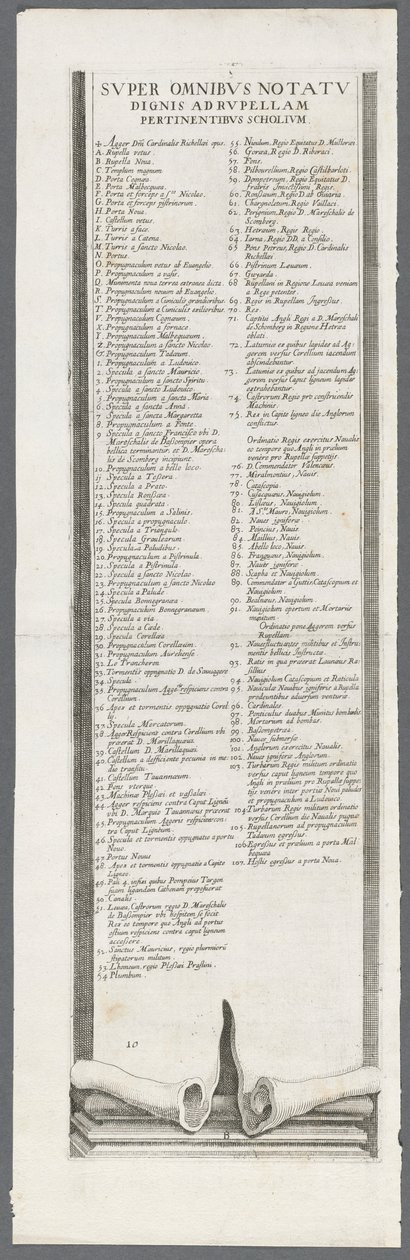 SVPER OMNIBVS NOTATV
DIGNIS AD RVPELLAM
PERTINENTIBVS SCHOLIVM
✠ Agger Dni Cardinalis Richellei opus.
A. Rupella vetus
B. Rupella Noua.
C. Templum magnum
D. Porta Cognea.
E. Porta Malbequea.
F. Porta et forceps a Sto Nicolao.
G. Porta et forceps pistrinorum.
H. Porta Noua.
I. Castellum vetus.
K. Turris a face.
L. Turris a Catena.
M. Turris a sancto Nicolao.
N. Portus.
O. Propugnaculum vetus ab Euangelio
P. Propugnaculum a vasis.
Q. Munimenta noua terrea extronea dicta.
R. Propugnaculum nouum ab Euangelio.
S. Propugnaculum a Cuniculis grandioribus.
T. Propugnaculum a Cuniculis exilioribus.
V. Propugnaculum Cogneum.
X. Propugnaculum a fornace
Y. Propugnaculum Malbequeum.
Z. Propugnaculum a sancto Nicolao.
Propugnaculum Tadæum.
1. Propugnaculum a Ludouico.
2. Specula a sancto Mauricio.
3. Propugnaculum a sancto Spiritu
4. Specula a sancto Ludouico.
5. Propugnaculum a sancta Maria
6. Specula a sancta Anna.
7. Specula a sancta Margareta
8. Propugnaculum a Fonte
9. Specula a sancto Francisco vbi D.
Mareschalis de Bassompier opera
bellica terminantur, et D. Marescha-
lis de Scomberg incipiunt.
10. Propugnaculum a belle loco.
11. Specula a Testera.
12. Specula a Prato.
13. Specula Rensæa.
14. Specula quadrata
15. Propugnaculum a Salinis.
16. Specula a propugnaculo.
17. Specula a Triangulo.
18. Specula Groulearum
19. Specula a Paludibus.
20. Propugnaculum a Pistrinula.
21. Specula a Pistrinula
22. Specula a sancto Nicolao.
23. Propugnaculum a sancto Nicolao
24. Specula a Palude
25. Specula Bonnegranæa
26. Propugnaculum Bonnegraneum.
27. Specula a via.
28. Specula a Cæde
29. Specula Corellæa
30. Propugnaculum Corellæum.
31. Propugnaculum Aurelsense
32. Le Trancheren
33. Tormentis oppugnatio D. de Sauuegere
34. Specula
35. Propugnaculum Aggo. respiciens contra
Corellium
36. Apex et tormentis oppugnatio Corel-
lij.
37. Specula Mercatorum.
38. Agger Respiciens contra Corellium vbi
præerat D. Marillaquus.
39. Castellum D. Marillaquei
40. Castellum a defficiente pecunia in me-
dio transitu
41. Castellum Tauanneum
42. Pons vterque
43. Machinæ Plessei et vassalei
44. Agger respiciens contra Caput Ligneu
vbi D. Marquis Tauanneus præerat
45. Propugnaculum Aggeris respiciens con-
tra Caput Ligneum.
46. Specula et tormentis oppugnatio a portu
Nouo
47. Portus Nouus
48. Apex et tormentis oppugnatio a Capite
Ligneo.
49. Pali 4. infixi quibus Pompeius Targon
suam ligandam Cathenam proposuerat
50. Canalis.
51. Leuua, Castrorum regio D. Mareschalis
de Bassompier vbi hospitem se fecit
Rex eo tempore quo Angli ad portus
ostium respiciens contra caput ligneum
accessere.
52. Sanctus Mauricius, regio plurimorū
stipatorum militum.
53. Lhoneum, regio Plessæi Praslini.
54. Plumbum.
55. Nieulum, Regio Equitatus D. Mulloræi
56. Goræa, Regio D. Riberaci.
57. Fons.
58. Pilbourellum, Regio Castelbarloti
59. Dompetreum, Regio Equitatus D.
fratris Inuictissimi Regis.
60. Ronsæum, Regio D. ab Oliuaria.
61. Chargnoleum, Regio Vaillaci.
62. Perigneum, Regio D. Mareschalis de
Scomberg.
63. Hetræum, Regis Regio.
64. Iarna, Regio DD. a Consilijs.
65. Pons Petreus, Regio D. Cardinalis
Richellei
66. Pistrinum Læuæum.
67. Guyarda
68. Rupellani in Regione Leuua veniam
a Rege petentes.
69. Regis in Rupellam Ingressus
70. Rex
71. Captiui Angli Regi a D. Mareschali
de Schomberg in Regione Hetræa
oblati.
72. Latumiæ ex quibus lapides ad Ag-
gerem versus Corellium iacendum
abscindebantur
73. Latumiæ ex quibus ad jacendum Ag-
gerem versus Caput ligneum lapides
extrahebantur.
74. Castrorum Regio pro construendis
Machinis.
75. Rex in Capite ligneo die Anglorum
conflictus.
Ordinatio Regis exercitus Naualis
eo tempore quo Angli in prælium
venere pro Rupellæ suppetijs.
76. D. Commendator Valencæus.
77. Miralmontius, Nauis.
78. Catascopia.
79. Cusacquæus, Nauigiolum
80. Lislæus, Nauigiolum.
81. A Sto Mauro, Nauigiolum.
82. Naues igniferæ.
83. Poincius, Nauis
84. Maillius, Nauis
85. Abelle loco, Nauis.
86. Frayquous, Nauigiolum.
87. Naues igniferæ
88. Scapha et Nauigiolum.
89. Commendator a Guttis Catascopium et
Nauigiolum
90. Beaulieus, Nauigiolum.
91. Nauigiolum opertum et Mortarijs
munitum
Ordinatio pone Aggerem versus
Rupellam.
92. Naues fluctuantes militibus et Instru-
mentis bellicis Instructæ
93. Ratis in qua præerat Launaus Ra-
sillius
94. Nauigiolum Catascopium et Raticula
95. Nauicula Nauibus igniferis a Rupella
prodeuntibus aduersum venturæ
96. Cardinales
97. Ponticulus duabus Munitus bombardis.
98. Mortarum ad bombas.
99. Bassompetræa.
100. Naues submersæ
101. Anglorum exercitus Naualis.
102. Naues igniferæ Anglorum.
103. Turbarum Regis militum ordinatio
versus caput ligneum tempore quo
Angli in prælium pro Rupellæ suppe-
tijs venere inter portus Noui paludes
et propugnaculum a Ludouico.
104. Turbarum Regis militum ordinatio
versus Corellium die Naualis pugnæ
105. Rupellanorum ad propugnaculum
Tadæum egressus.
106. Egressus et prælium a porta Mal-
bequæa
107. Hostis egressus a porta Noua.
10
B